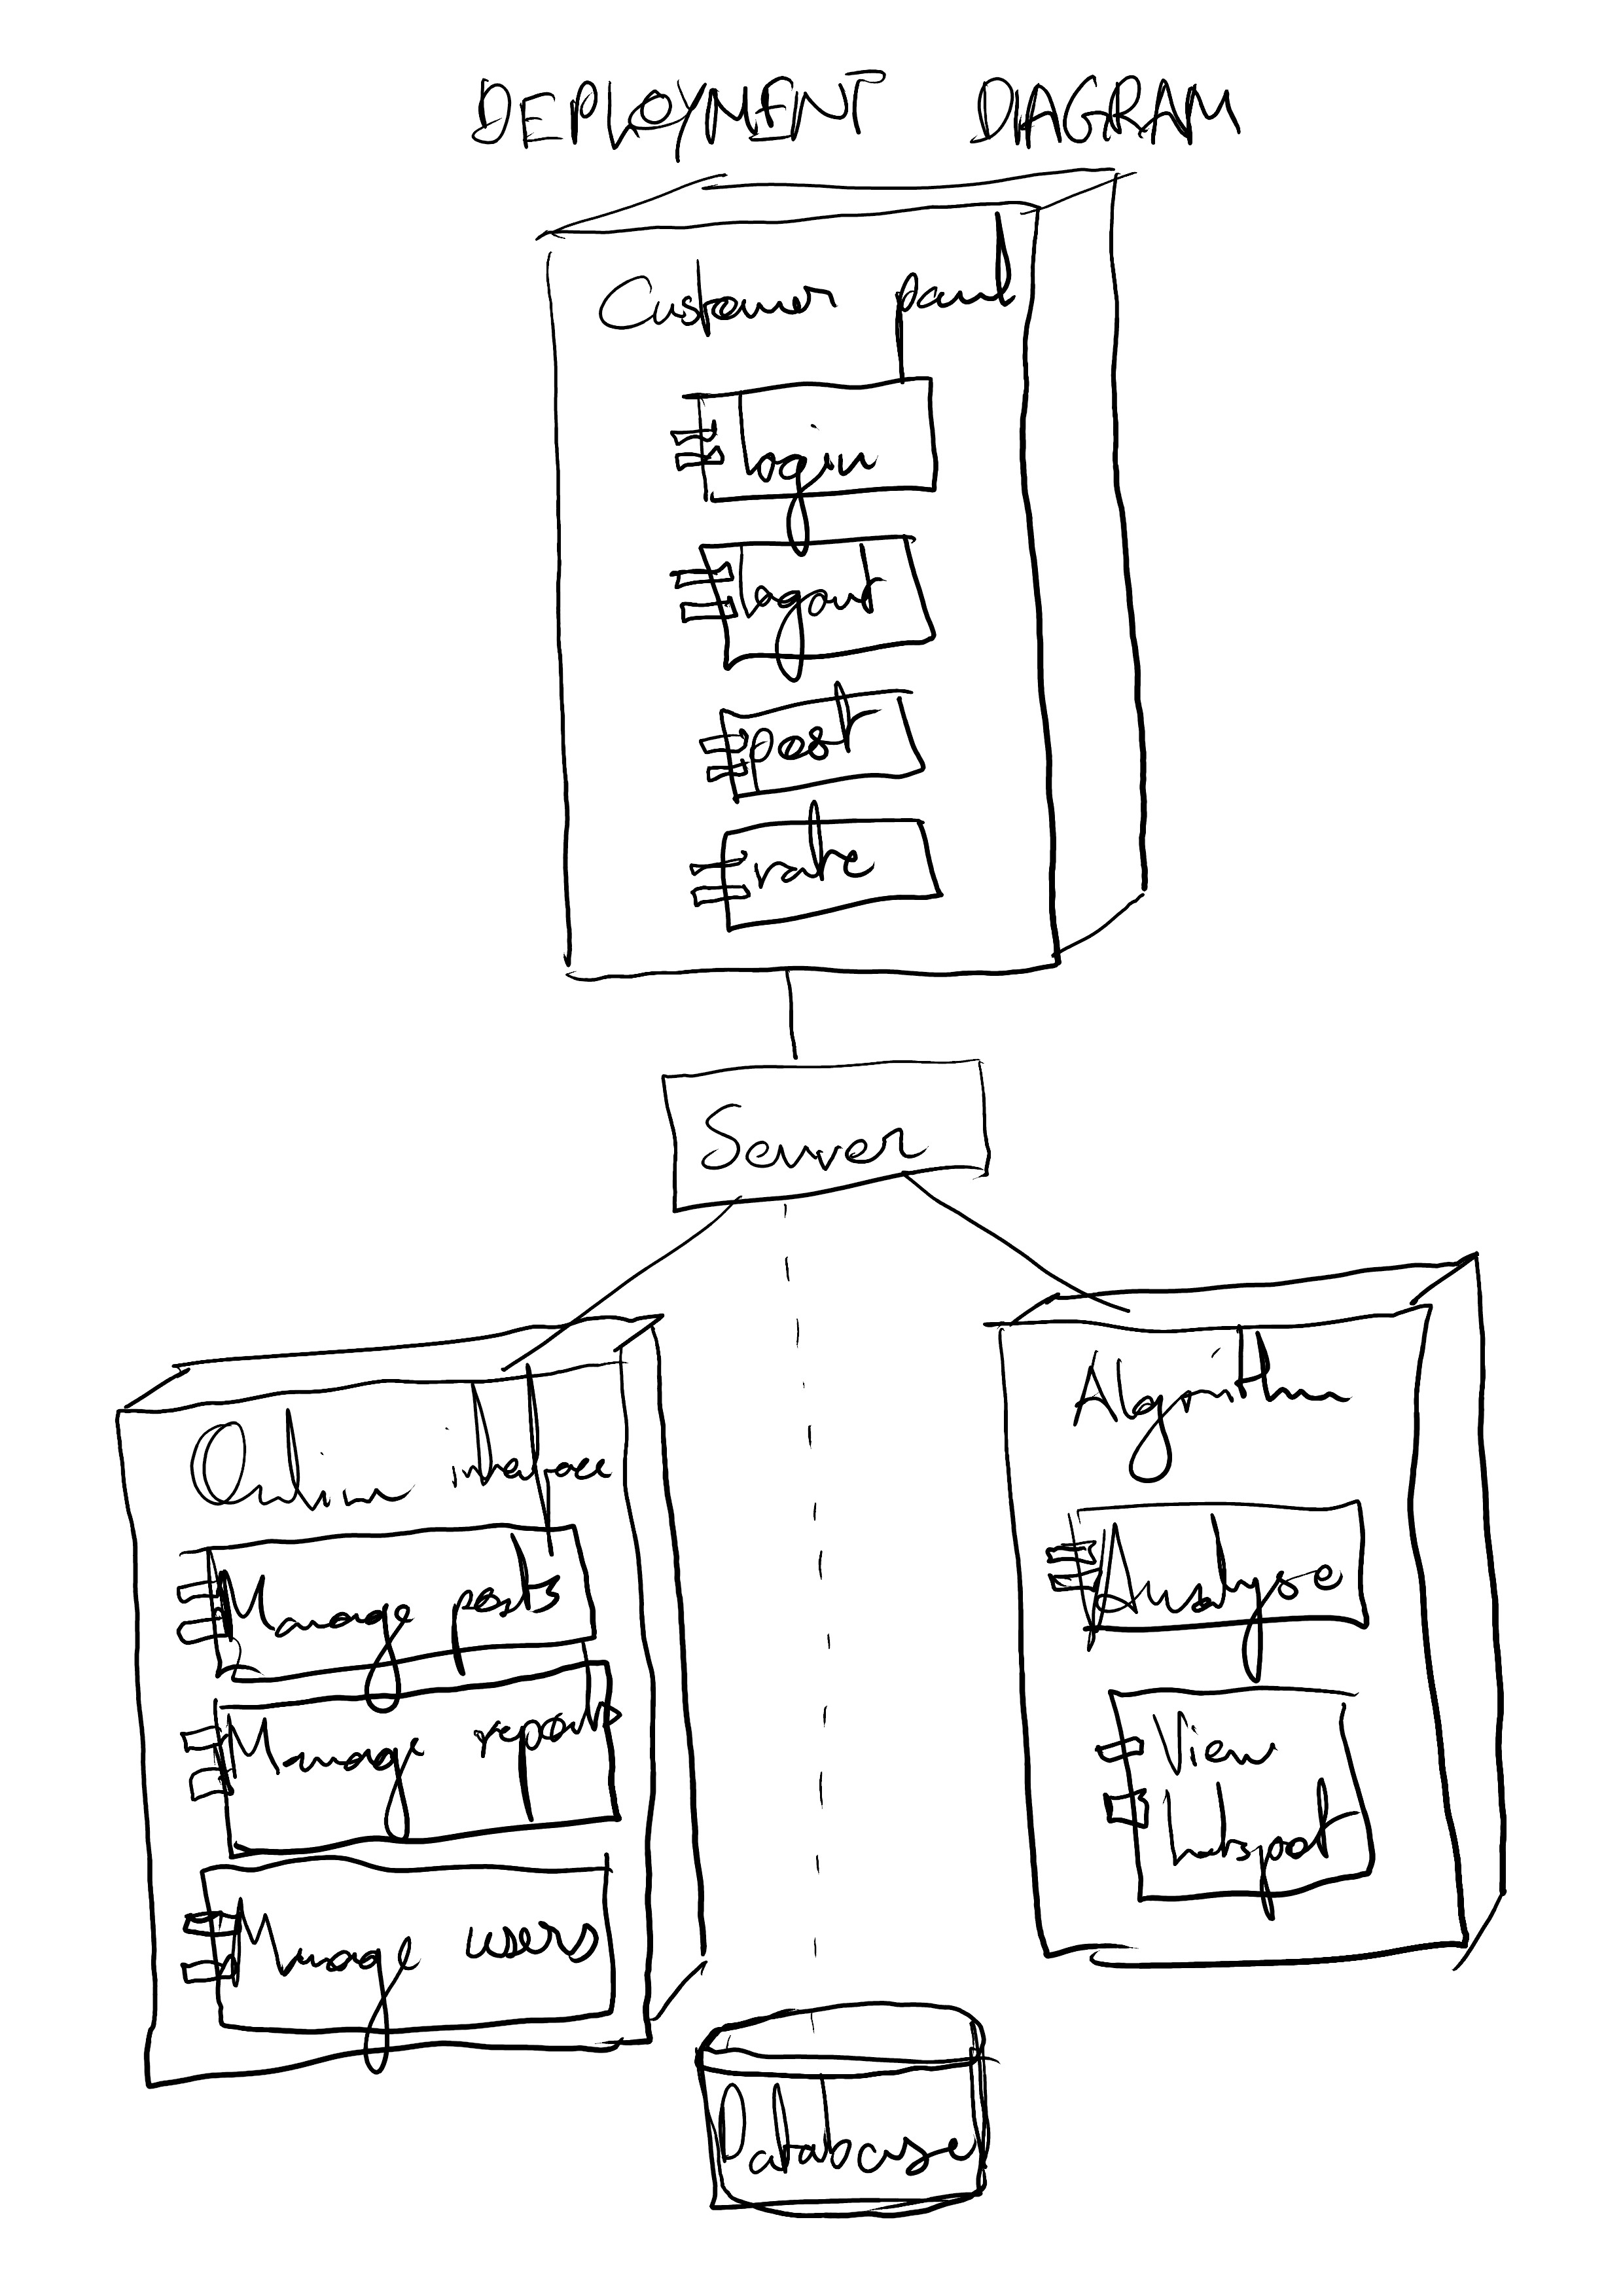 DEPLOYMENT DIAGRAM
Customer panel
login
logout
post
rate
Server
Online interface
Manage posts
Manage reports
Manage users
Algorithm
Analyse
View
hotspot
Database